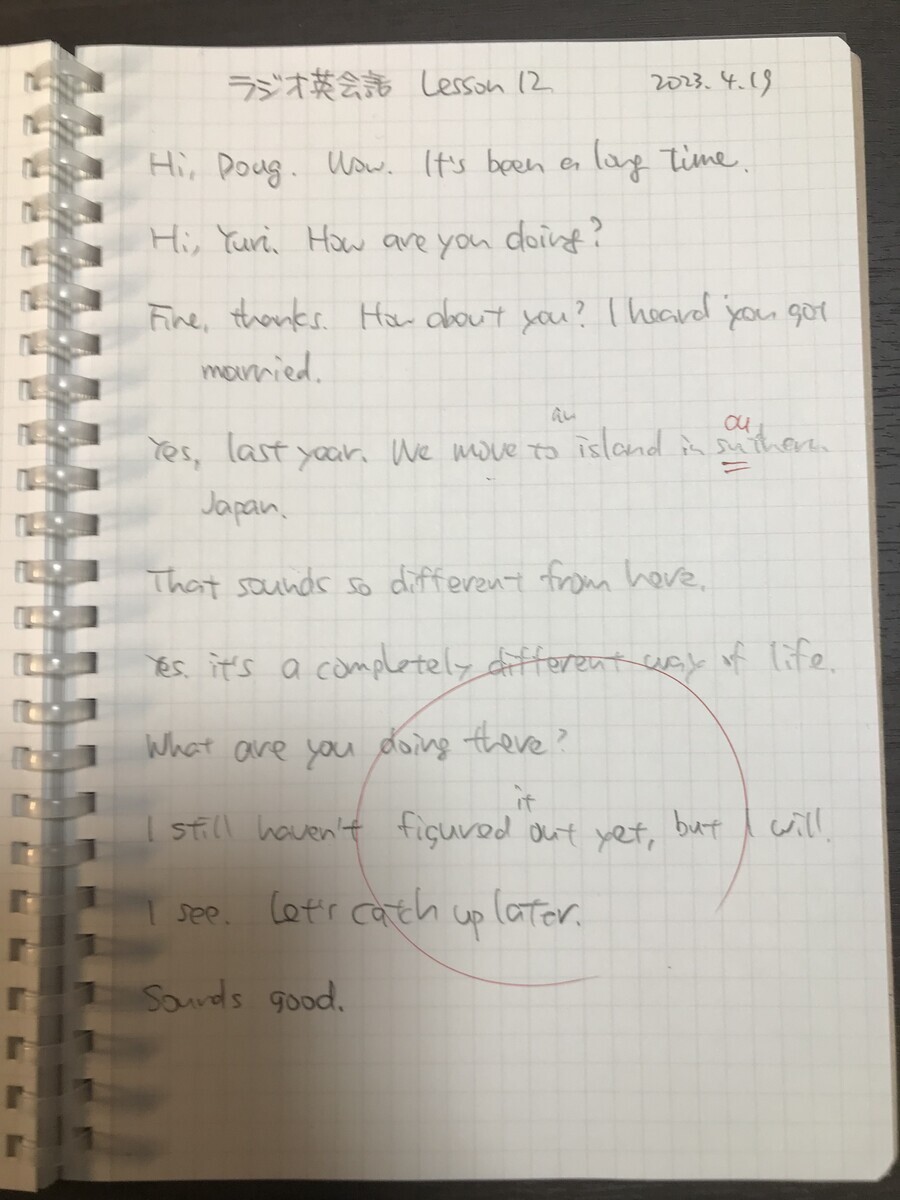 ラジオ英会話 Lesson 12 2023.4.19
Hi, Doug. Wow. It's been a long time.
Hi, Yuri. How are you doing?
Fine, thanks. How about you? I heard you got
married.
an
ou
Yes, last year. We move to island in suthern
Japan.
That sounds so different from here.
Yes. it's a completely different way of life.
What are you doing there?
it
I still haven't figured out yet, but I will.
I see. Let's catch up later.
Sounds good.